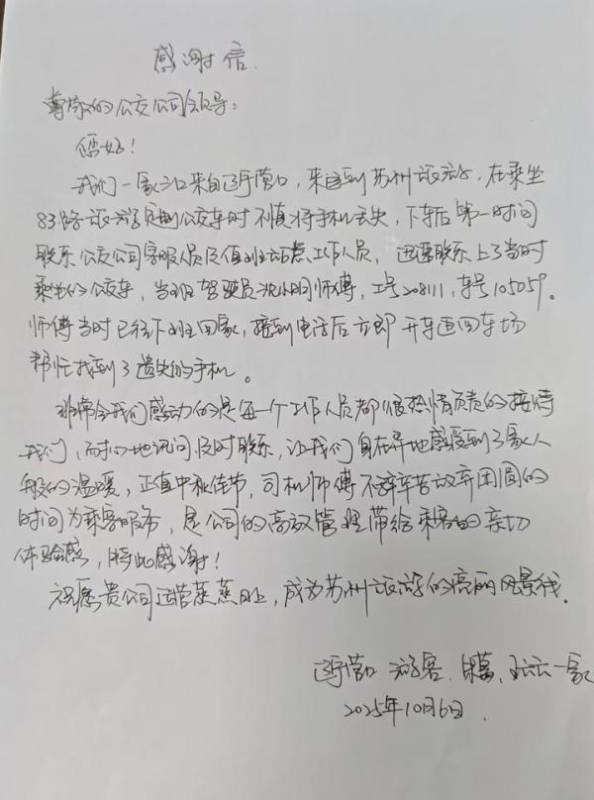 感谢信
尊敬的公交公司领导：
您好！
我们一家三口来自辽宁营口，来到苏州旅游，在乘坐
83路旅游定制公交车时不慎将手机丢失，下车后第一时间
联系公交公司客服人员及值班站点工作人员，迅速联系上了当时
乘坐的公交车，当班驾驶员沈小明师傅，工号208111，车号105059。
师傅当时已经下班回家，接到电话后立即开车返回车场
帮忙找到了遗失的手机。
非常令我们感动的是每一个工作人员都很热情负责的接待
我们，耐心地讯问，及时联系，让我们身在异地感受到了家人
般的温暖，正值中秋佳节，司机师傅不辞辛苦放弃团圆的
时间为乘客服务，是公司的高效管理带给乘客的亲切
体验感，特此感谢！
祝愿贵公司运营蒸蒸日上，成为苏州旅游的亮丽风景线。
辽宁营口 游客 一家
2025年10月6日.